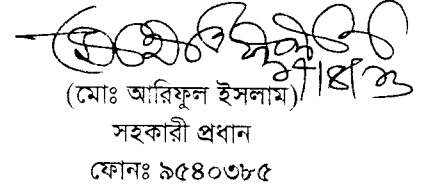 (মোঃ আরিফুল ইসলাম)
সহকারী প্রধান
ফোনঃ ৯৫৪০৩৮৫